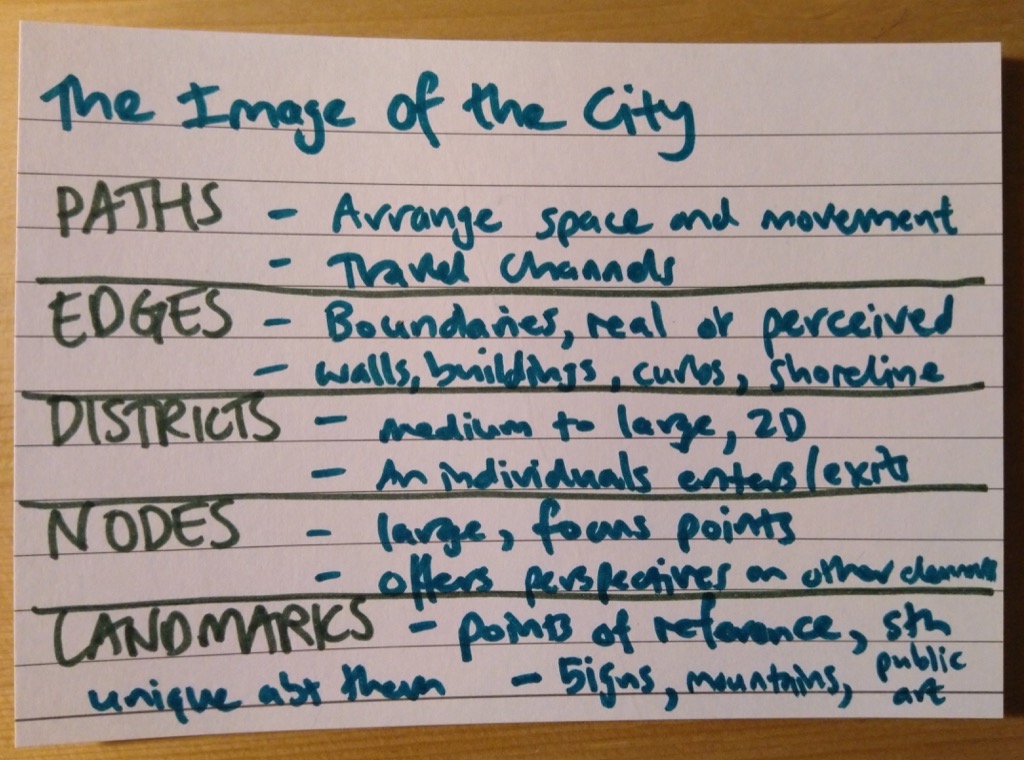 The Image of the City
PATHS - Arrange space and movement
- Travel channels
EDGES - Boundaries, real or perceived
- walls, buildings, curbs, shoreline
DISTRICTS - medium to large, 2D
- An individuals enters/exits
NODES - large, focus points
- offers perspectives on other elements
LANDMARKS - points of reference, sth
unique abt them - Signs, mountains, public art